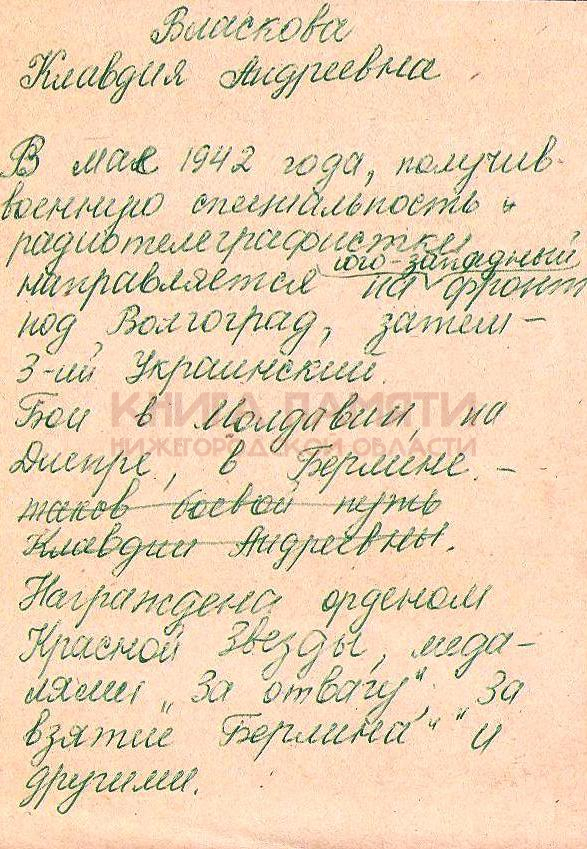 Власкова
Клавдия Андреевна
В мае 1942 года, получив
военную специальность
радиотелеграфистки
юго-западный
направляется на фронт
под Волгоград, затем –
3-ий Украинский.
КНИГА ПАМЯТИ
Бои в Молдавии на
НИЖЕГОРОДСКОЙ ОБЛАСТИ
Днепре, в Берлине –
таков боевой путь
Клавдии Андреевны.
Награждена орденом
Красной Звезды, меда-
лями „За отвагу", „За
взятие Берлина" и
другими.